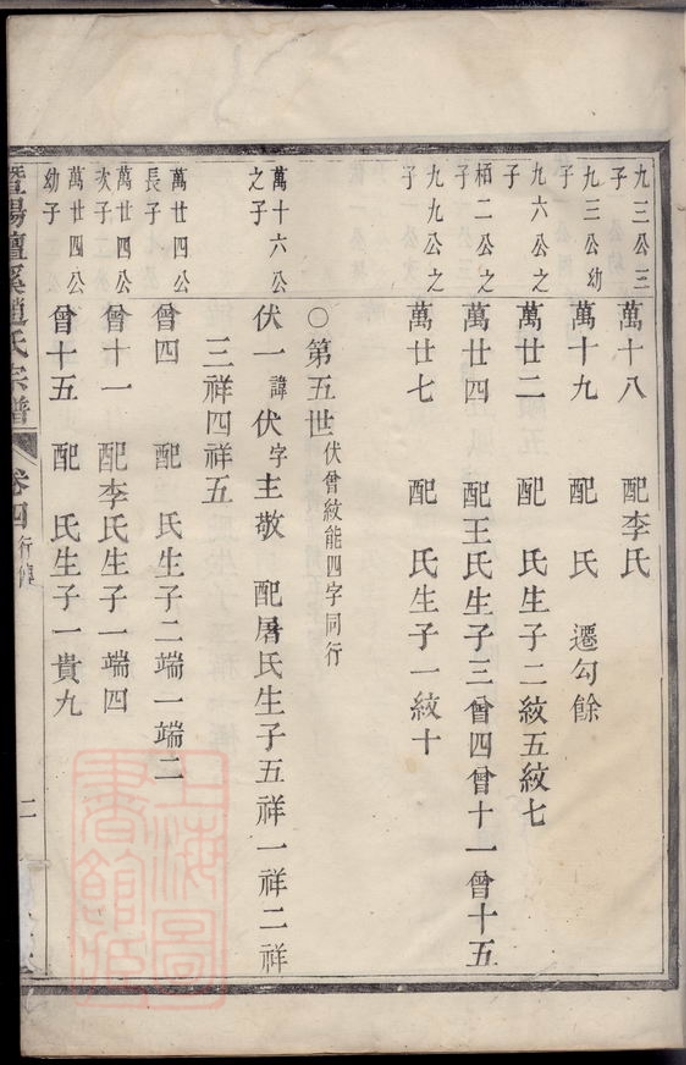 九三公三子 萬十八 配李氏
九三公幼子 萬十九 配 氏 遷勾餘
九六公之子 萬廿二 配 氏生子二紋五紋七
栢二公之子 萬廿四 配王氏生子三曾四曾十一曾十五
九九公之子 萬廿七 配 氏生子一紋十
○第五世伏曾紋能四字同行
萬十六公之子 伏一諱伏字主敬 配屠氏生子五祥一祥二祥
三祥四祥五
萬廿四公長子 曾四 配 氏生子二端一端二
萬廿四公次子 曾十一 配李氏生子一端四
萬廿四公幼子 曾十五 配 氏生子一貴九
暨陽檀溪趙氏宗譜 卷四 行傳 二
上海圖書館藏